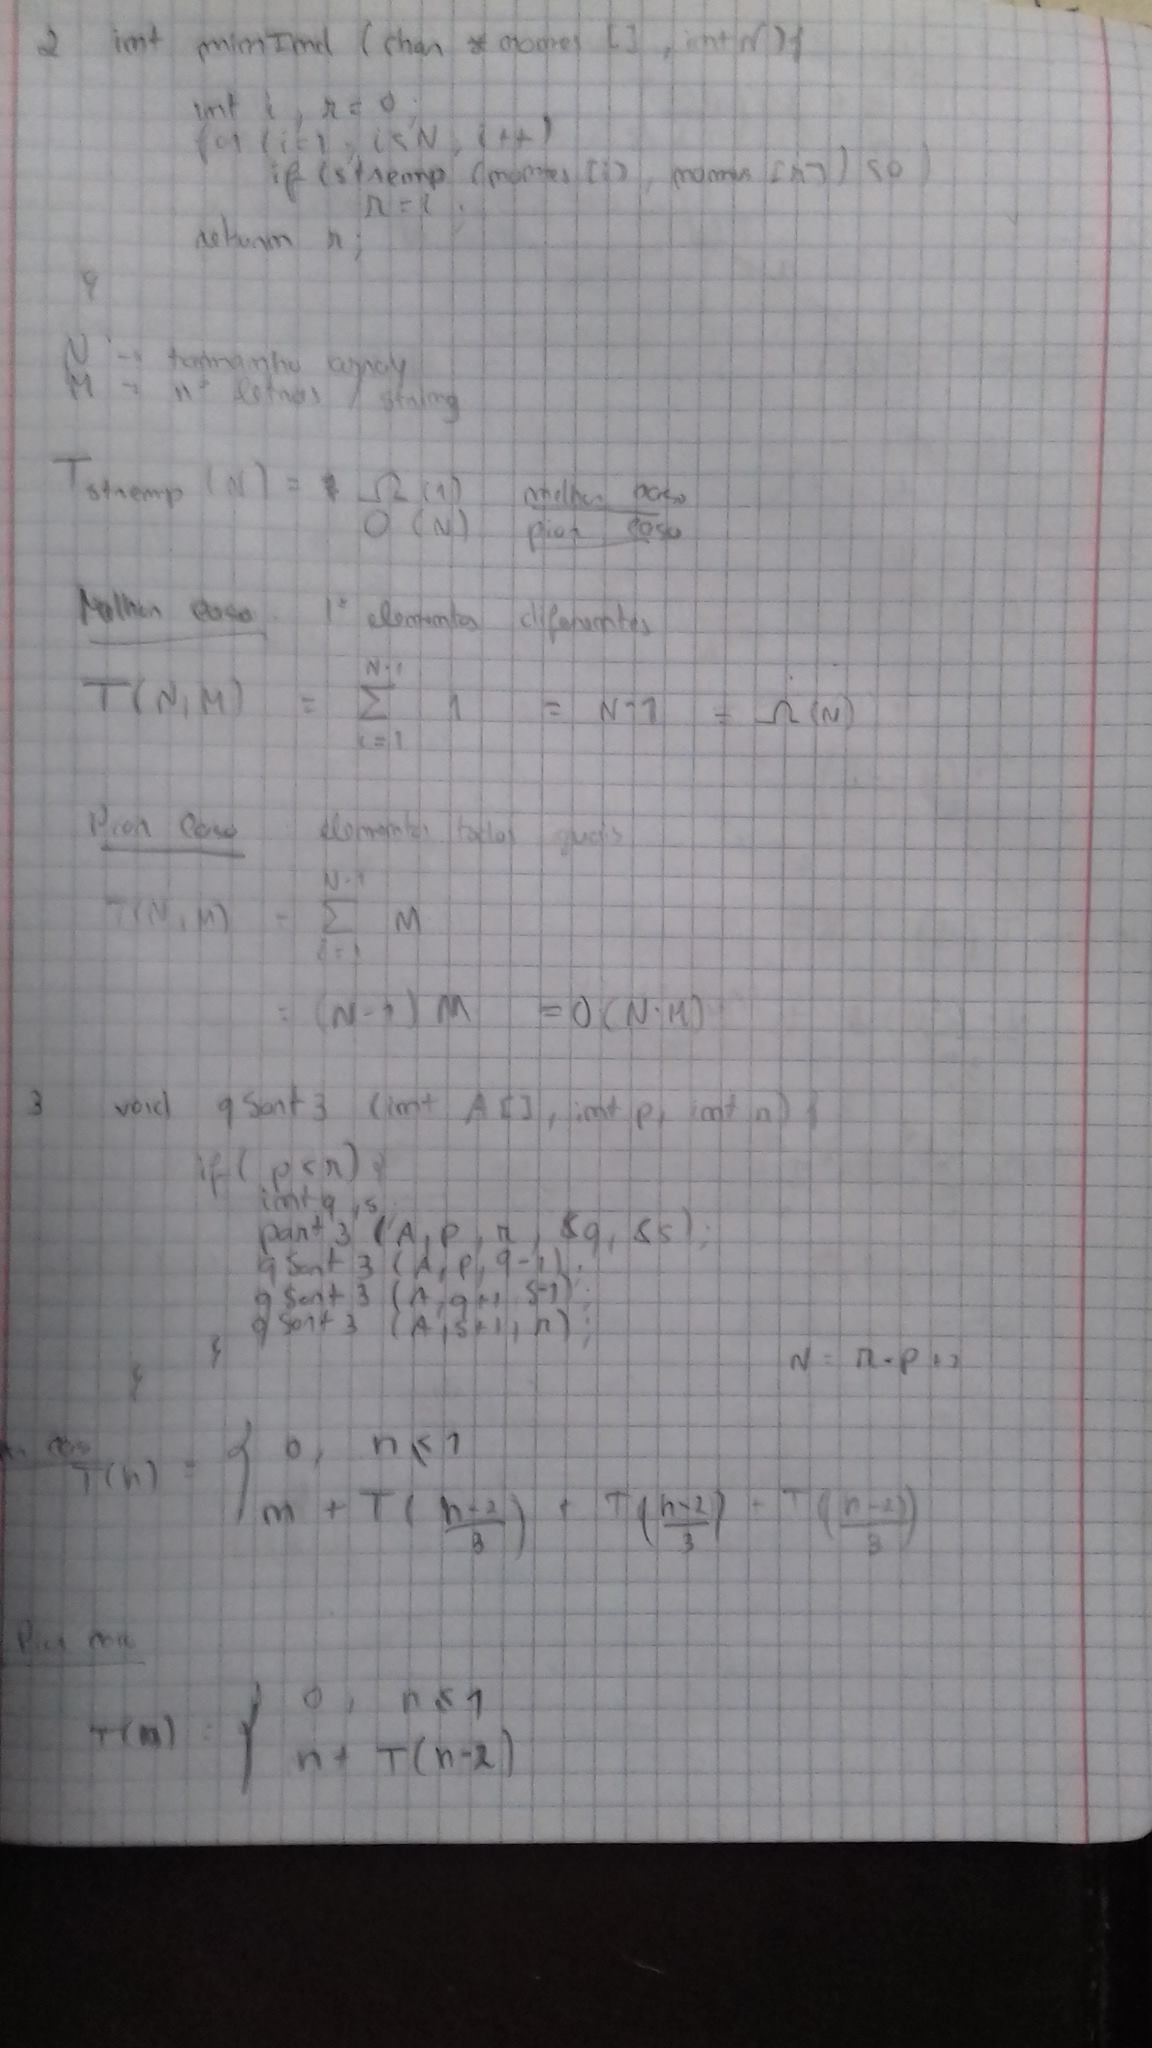 2 int minInd (char * nomes [], int N) {
int i, r = 0;
for (i=1; i<N; i++)
if (strcmp (nomes [i], nomes [r]) < 0)
r = i;
return r;
}
N → tamanho array
M → nº letras / string
Tstrcmp (N) = Ω (1) melhor caso
O (N) pior caso
Melhor caso 1º elementos diferentes
T(N,M) = Σ_{i=1}^{N-1} 1 = N-1 = Ω(N)
Pior Caso elementos todos iguais
T(N,M) = Σ_{i=1}^{N-1} M
= (N-1) M = O(N.M)
3 void qSort3 (int A[], int p, int r) {
if (p < r) {
int q, s;
part3 (A, p, r, &q, &s);
qSort3 (A, p, q-1);
qSort3 (A, q+1, s-1);
qSort3 (A, s+1, r);
}
}
N = r-p+1
caso T(n) = { 0, n ≤ 1
n + T((n-2)/3) + T((n-2)/3) + T((n-2)/3)
Pior
T(n) = { 0, n ≤ 1
n + T(n-2)